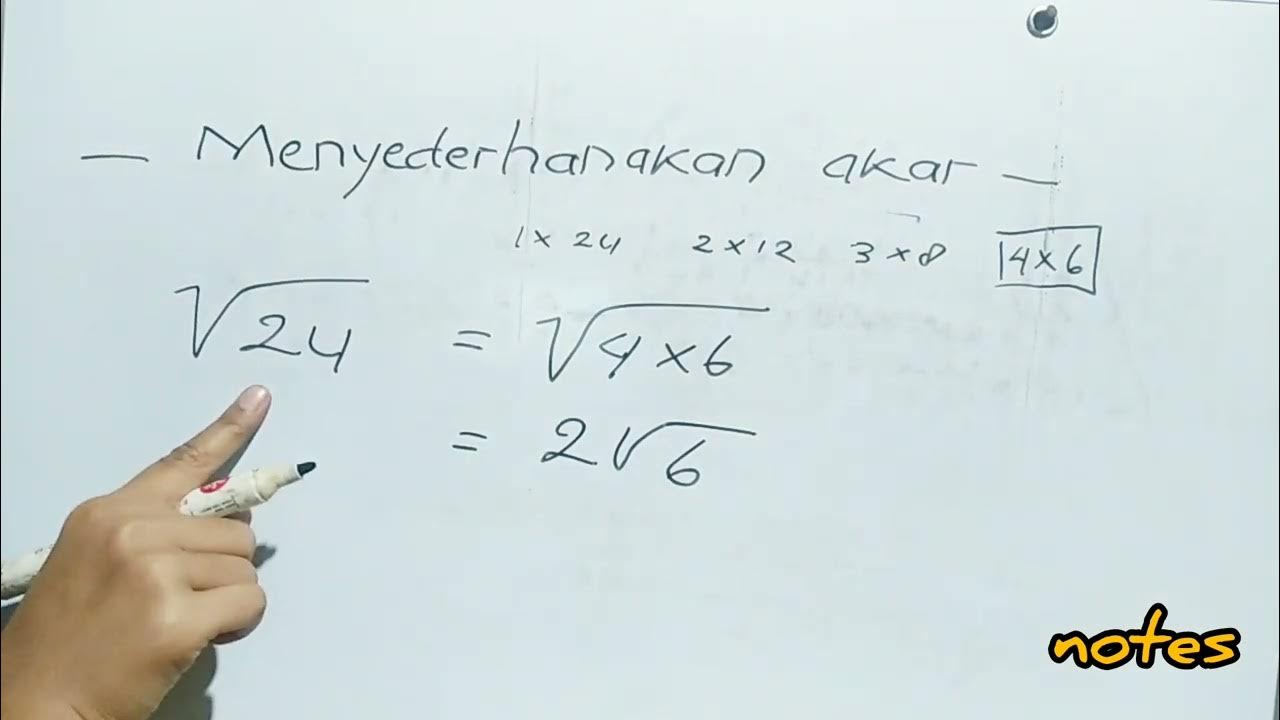 — Menyederhanakan akar —
1 x 24 2 x 12 3 x 8 4 x 6
√24 = √4 x 6
= 2√6
notes